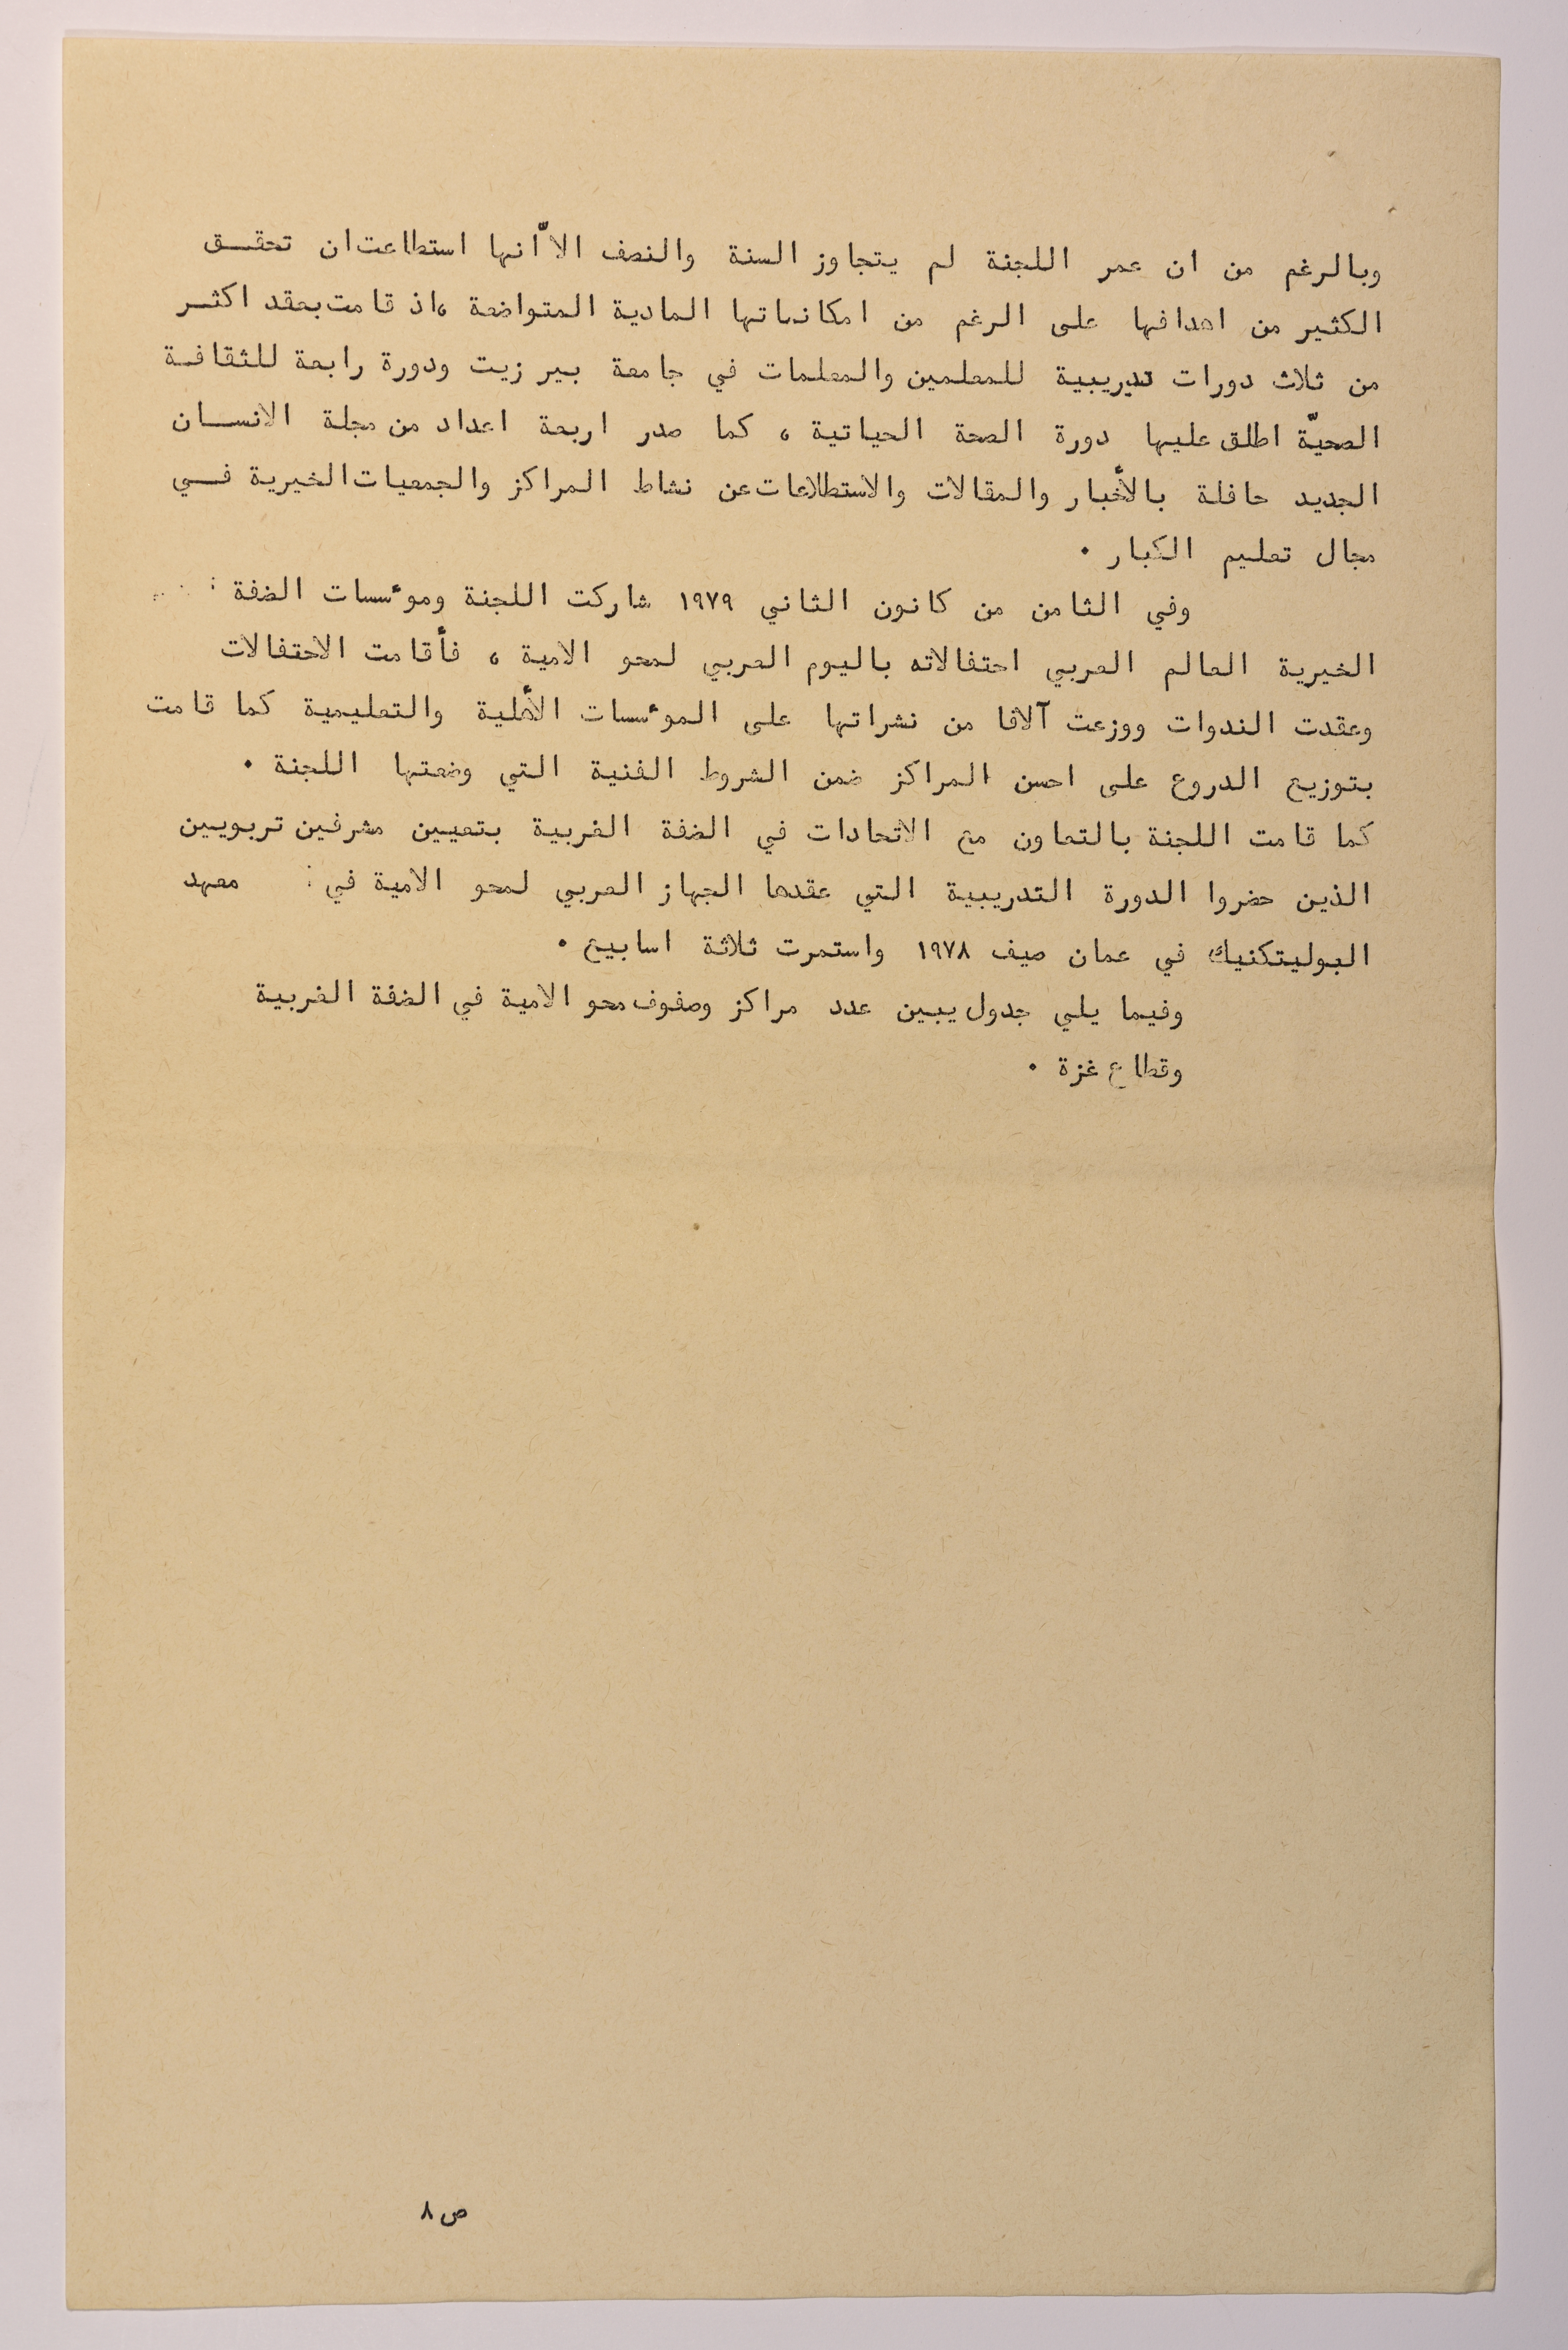 وبالرغم من ان عمر اللجنة لم يتجاوز السنة والنصف الاّ أنها استطاعت ان تحقـــق
الكثير من اهدافها على الرغم من امكاناتها المادية المتواضعة ، اذ قامت بعقد اكثـــر
من ثلاث دورات تدريبية للمعلمين والمعلمات في جامعة بير زيت ودورة رابعة للثقافــة
الصحيّة اطلق عليها دورة الصحة الحياتية ، كما صدر اربعة اعداد من مجلة الانســـان
الجديد حافلة بالأخبار والمقالات والاستطلاعات عن نشاط المراكز والجمعيات الخيرية فـــي
مجال تعليم الكبار .
وفي الثامن من كانون الثاني ١٩٧٩ شاركت اللجنة ومؤسسات الضفة
الخيرية العالم العربي احتفالاته باليوم العربي لمحو الامية ، فأقامت الاحتفالات
وعقدت الندوات ووزعت آلافا من نشراتها على المؤسسات الأهلية والتعليمية كما قامت
بتوزيع الدروع على احسن المراكز ضمن الشروط الفنية التي وضعتها اللجنة .
كما قامت اللجنة بالتعاون مع الاتحادات في الضفة الغربية بتعيين مشرفين تربويين
الذين حضروا الدورة التدريبية التي عقدها الجهاز العربي لمحو الامية في : معهد
البوليتكنيك في عمان صيف ١٩٧٨ واستمرت ثلاثة اسابيع .
وفيما يلي جدول يبين عدد مراكز وصفوف محو الامية في الضفة الغربية
وقطاع غزة .
ص ٨